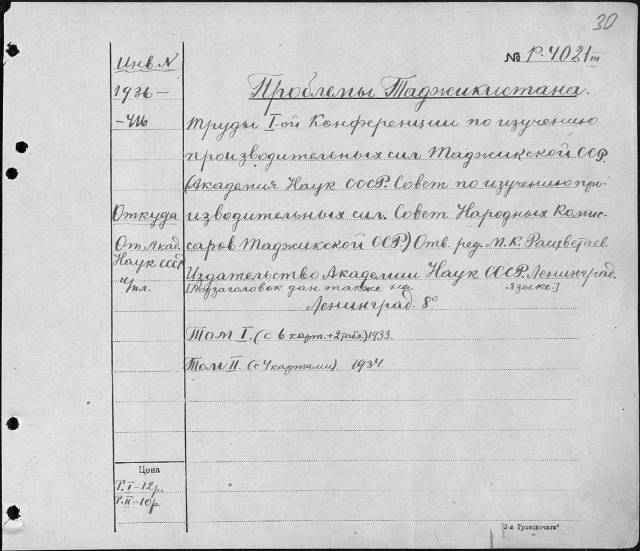 30
№ Р.4021 III
Инв. N
1936 —
— 416
Проблемы Таджикистана.
Труды I-ой Конференции по изучению
производительных сил Таджикской ССР.
(Академия Наук СССР. Совет по изучению про-
Откуда
изводительных сил. Совет Народных Комис-
От Акад.
Наук СССР
саров Таджикской ССР.) Отв. ред. М. К. Расцветаев
Издательство Академии Наук СССР. Ленинград.
[Подзаголовок дан также на языке.]
Ленинград. 8°
Том I. (с 6 карт. + 2 табл.) 1933.
Том II. (с 4 картами) 1934
Цена
Т. I — 12 р.
Т. II — 10 р.